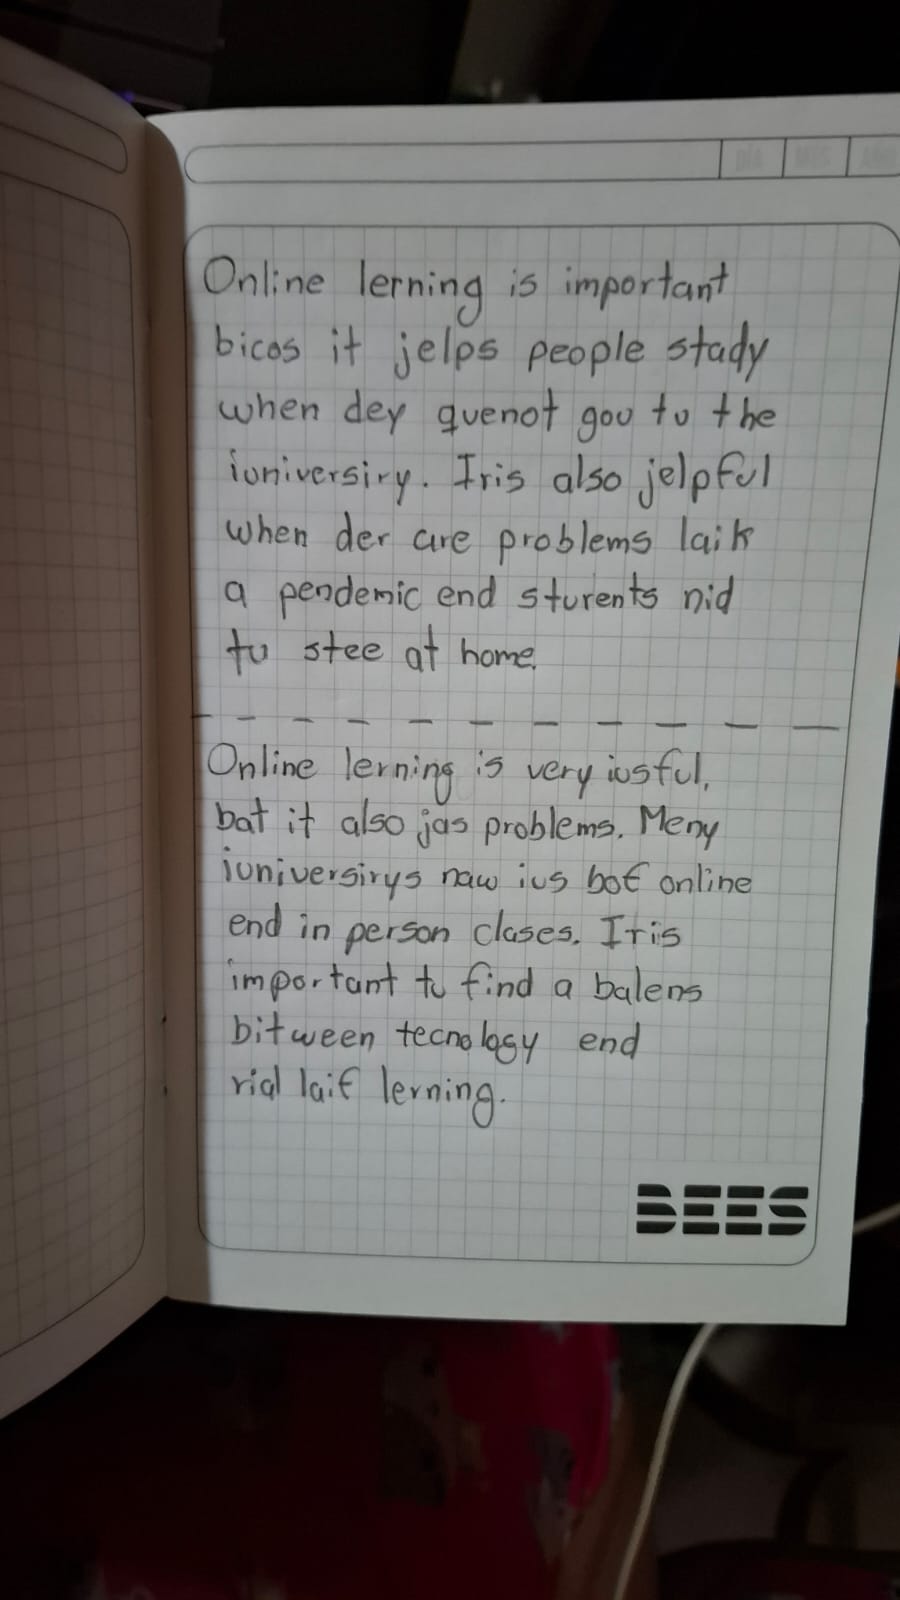 DÍA MES AÑO
Online lerning is important
bicos it jelps people stady
when dey quenot gou tu the
iuniversiry. Iris also jelpful
when der are problems laik
a pendemic end sturents nid
tu stee at home.
Online lerning is very iusful,
bat it also jas problems. Meny
iuniversirys naw ius bof online
end in person clases. Iris
important tu find a balens
bitween tecnology end
rial laif lerning.
BEES